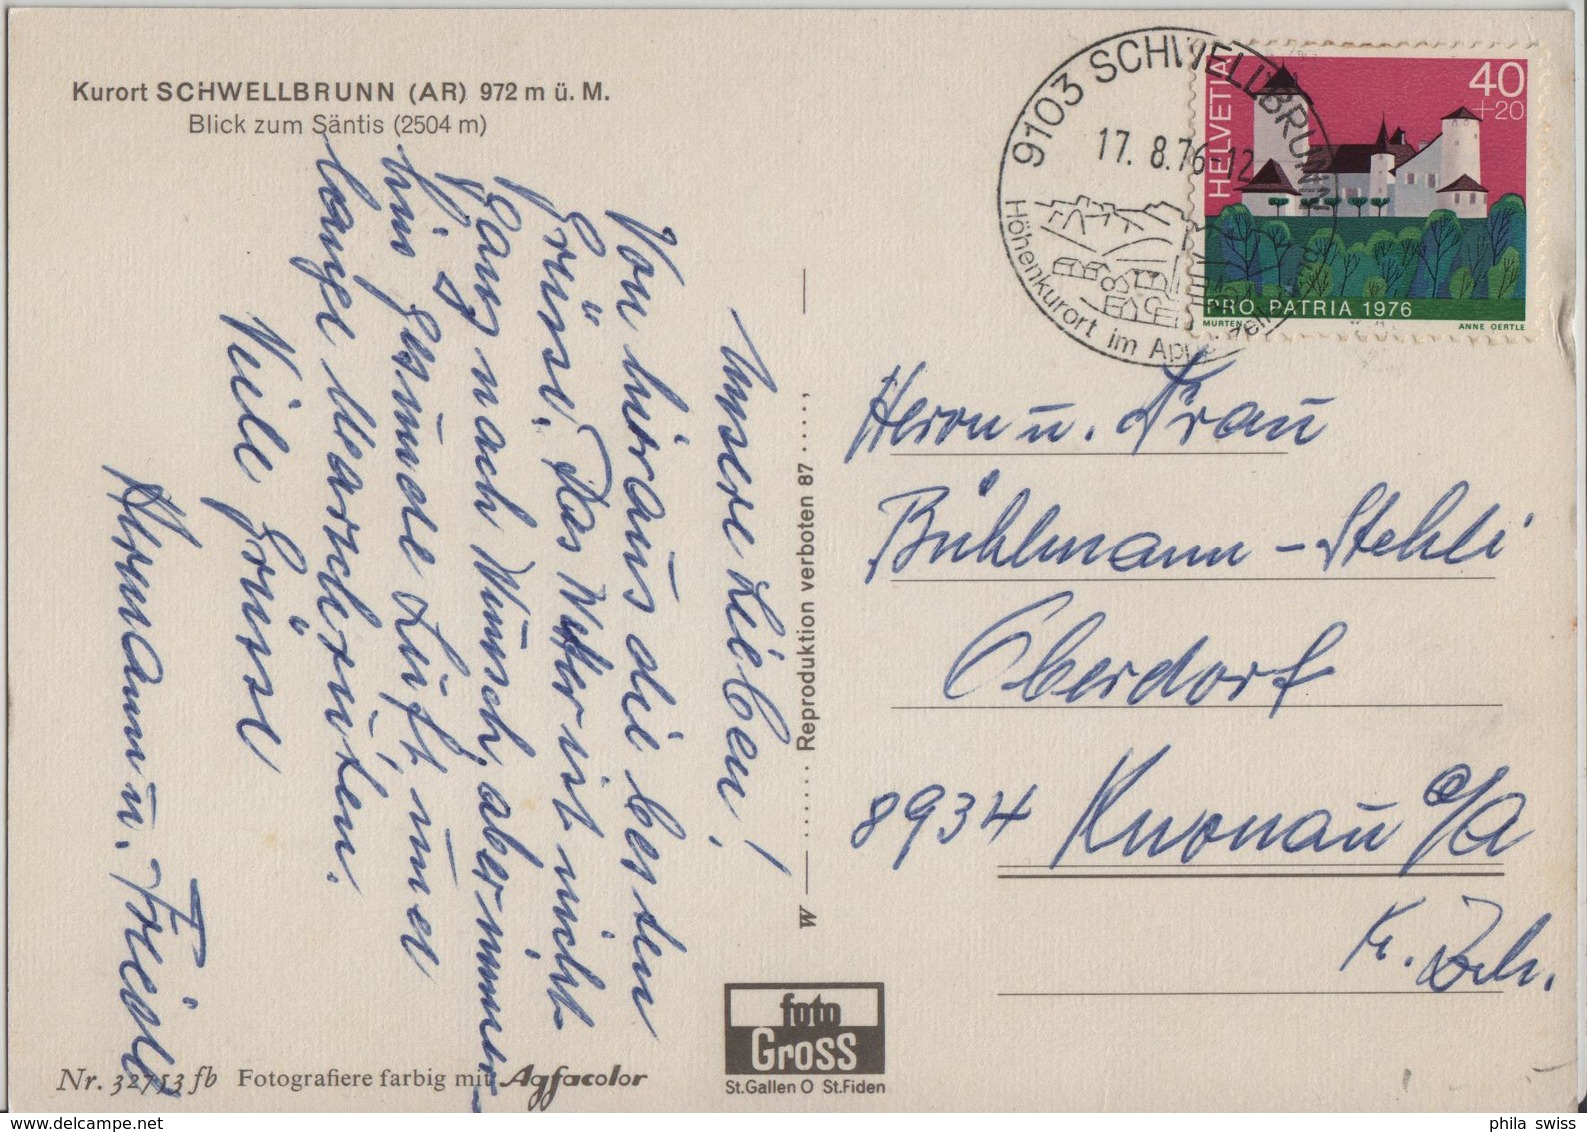 Kurort SCHWELLBRUNN (AR) 972 m ü. M.
Blick zum Säntis (2504 m)
Unsere Lieben!
Von hieraus die besten
Grüsse. Das Wetter ist nicht
ganz nach Wunsch, aber immer-
hin gesunde Luft, und
lange Marschrouten.
Viele Grüsse
Hermann u. Friedel
Nr. 32753 fb Fotografiere farbig mit Agfacolor
w
Reproduktion verboten 87
foto
Gross
St.Gallen O St.Fiden
9103 SCHWELLBRUNN
17. 8.76-12
Höhenkurort im Appenzellerland
HELVETIA
40
+20
PRO PATRIA 1976
MURTEN
ANNE OERTLE
Herrn u. Frau
Bühlmann-Stehli
Oberdorf
8934 Knonau a/A
Kt. Zch.
phila swiss